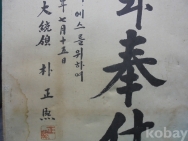 奉仕
에스를위하여
年七月十五日
大統領 朴正熙
kobay